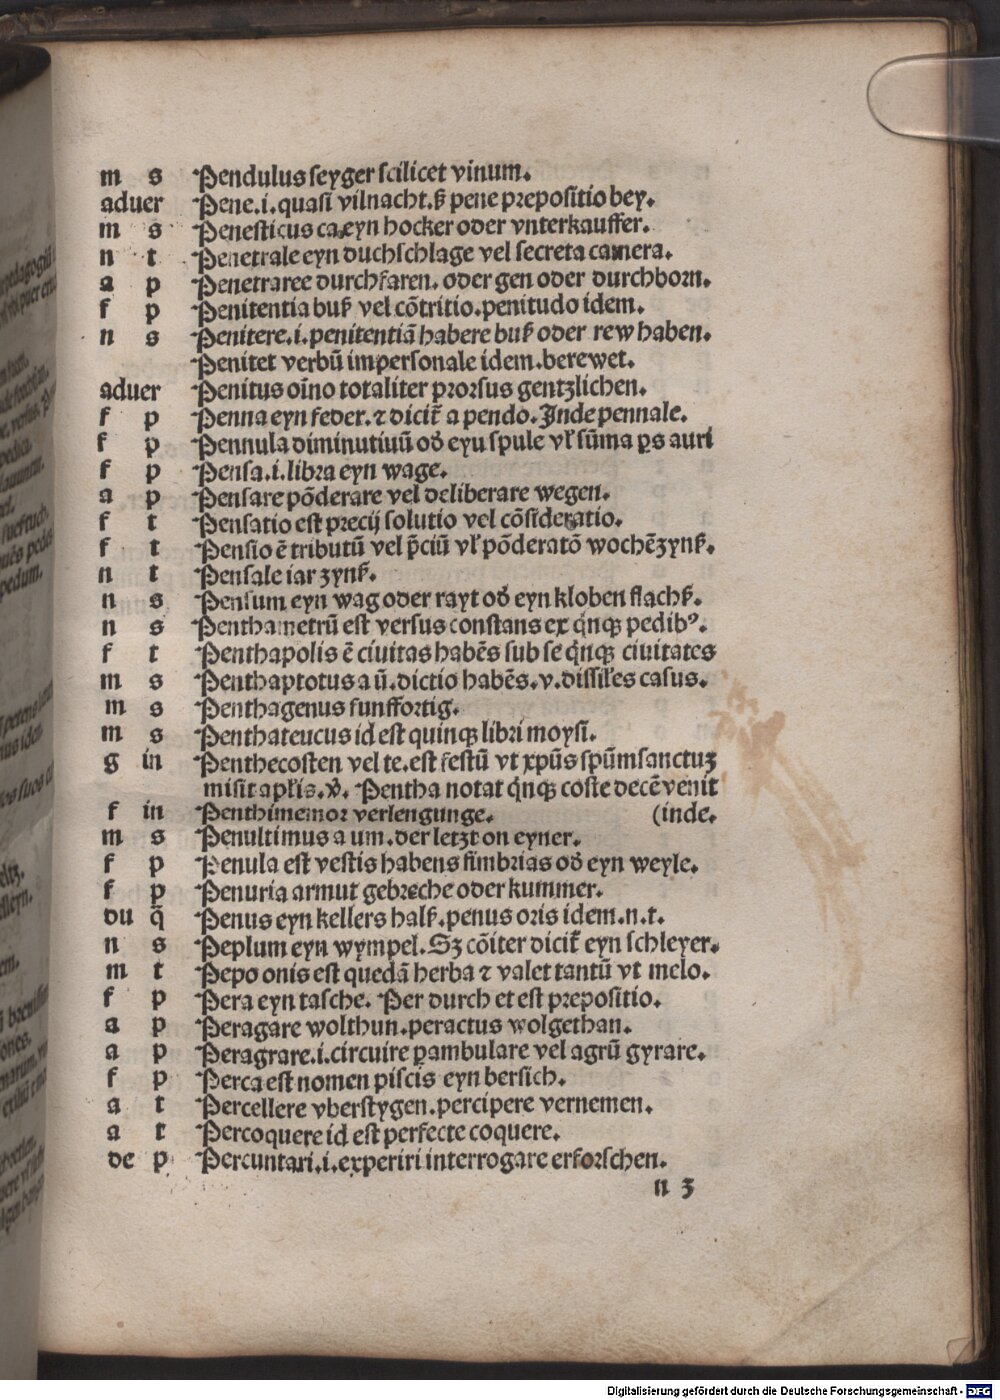 m s Pendulus seyger scilicet vinum.
aduer Pene.i.quasi vilnacht.ß pene prepositio bey.
m s Penesticus ca.eyn hocker oder vnterkauffer.
n t Penetrale eyn duchschlage vel secreta camera.
a p Penetraree durchfaren. oder gen oder durchborn.
f p Penitentia buß vel cõtritio.penitudo idem.
n s Penitere.i.penitentiã habere buß oder rew haben.
Penitet verbũ impersonale idem.berewet.
aduer Penitus oĩno totaliter prorsus gentzlichen.
f p Penna eyn feder.⁊ dicit̃ a pendo. Inde pennale.
f p Pennula diminutiuũ od̉ eyu spule vł sũma ꝑs auri
f p Pensa.i.libra eyn wage.
a p Pensare põderare vel deliberare wegen.
f t Pensatio est precij solutio vel cõsideratio.
f t Pensio ẽ tributũ vel p̃ciũ vł põderatõ wochẽzynß.
n t Pensale iar zynß.
n s Pensum eyn wag oder rayt od̉ eyn kloben flachß.
n s Penthametrũ est versus constans ex qͥnqꝫ pedibꝰ.
f t Penthapolis ẽ ciuitas habẽs sub se qͥnqꝫ ciuitates
m s Penthaptotus a ũ.dictio habẽs.v.dissiłes casus.
m s Penthagenus funffortig.
m s Penthateucus id est quinqꝫ libri moysi.
g in Penthecosten vel te.est festũ vt xp̃us spũmsanctuꝫ
misit apłis.v̉. Pentha notat qͥnqꝫ coste decẽ venit
f in Penthimemor verlengunge. (inde.
m s Penultimus a um.der letzt on eyner.
f p Penula est vestis habens fimbrias od̉ eyn weyle.
f p Penuria armut gebreche oder kummer.
du q̃ Penus eyn kellers halß.penus oris idem.n.t.
n s Peplum eyn wympel. Sꝫ cõiter dicit̃ eyn schleyer.
m t Pepo onis est quedã herba ⁊ valet tantũ vt melo.
f p Pera eyn tasche. Per durch et est prepositio.
a p Peragare wolthun.peractus wolgethan.
a p Peragrare.i.circuire ꝑambulare vel agrũ gyrare.
f p Perca est nomen piscis eyn bersich.
a t Percellere vberstygen.percipere vernemen.
a t Percoquere id est perfecte coquere.
de p Percuntari.i.experiri interrogare erforschen.
n 3
Digitalisierung gefördert durch die Deutsche Forschungsgemeinschaft - DFG